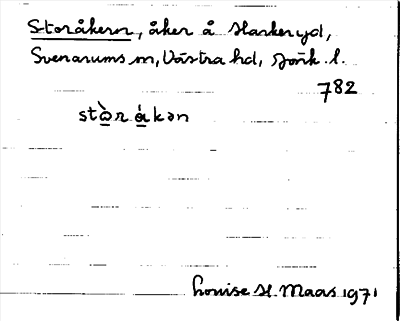 Storåkern, åker å Harkeryd,
Svenarums sn, Västra hd, Jönk. l.
782
stò̱r á̱kən
Louise H. Maas 1971